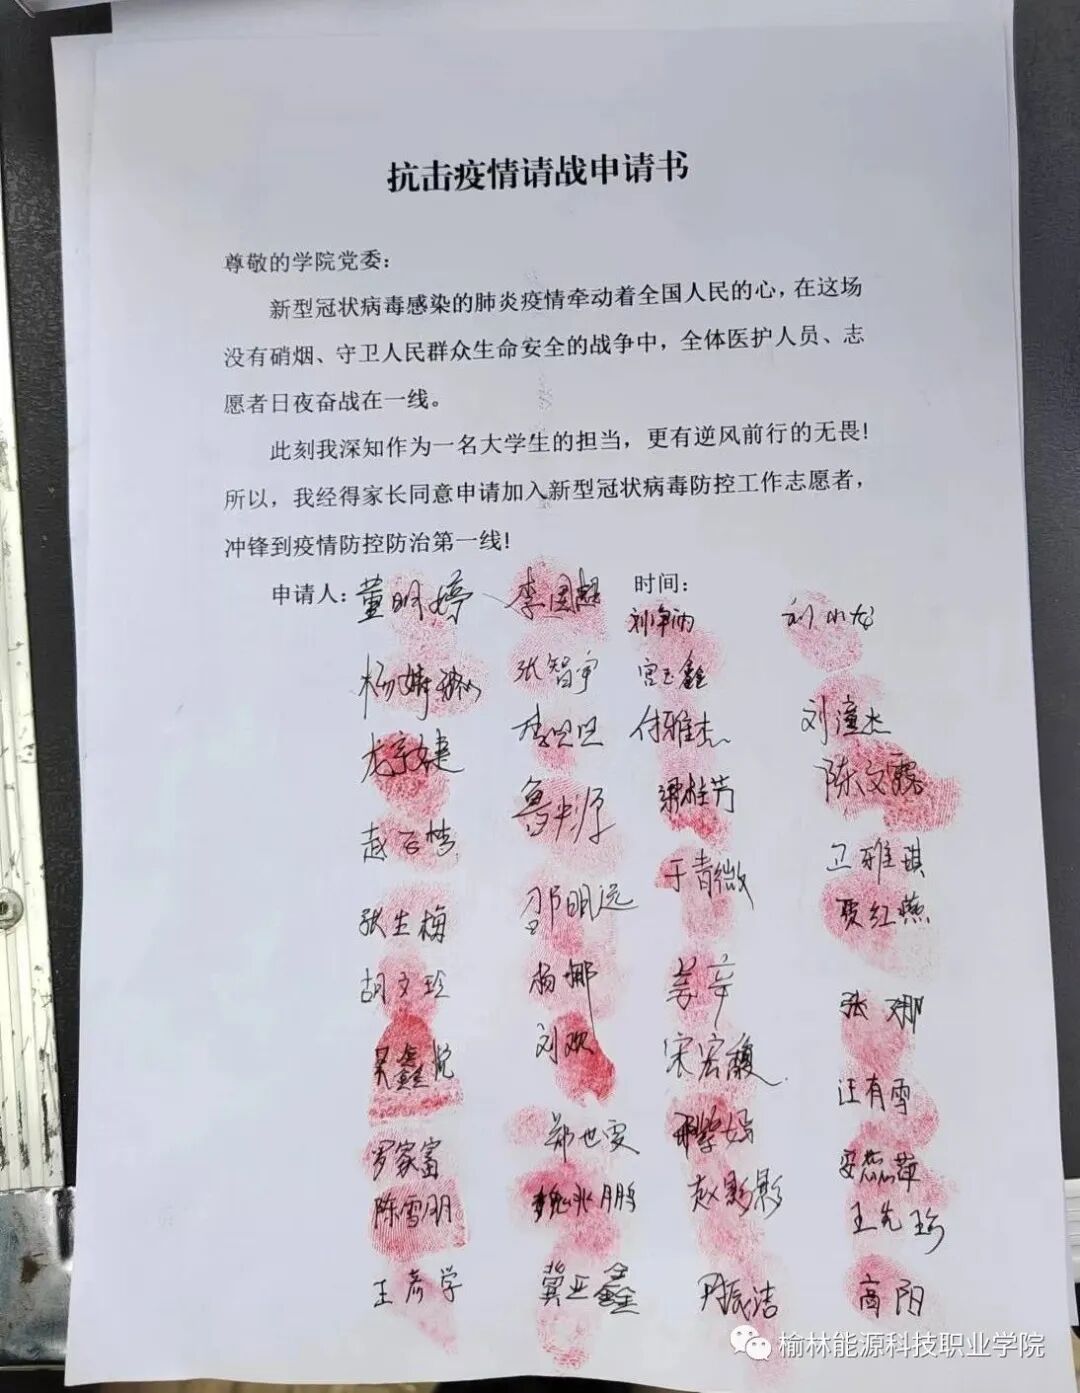 抗击疫情请战申请书
尊敬的学院党委：
新型冠状病毒感染的肺炎疫情牵动着全国人民的心，在这场
没有硝烟、守卫人民群众生命安全的战争中，全体医护人员、志
愿者日夜奋战在一线。
此刻我深知作为一名大学生的担当，更有逆风前行的无畏！
所以，我经得家长同意申请加入新型冠状病毒防控工作志愿者，
冲锋到疫情防控防治第一线！
申请人：董明婷 李国超 时间：
张智宇 宫玉鑫
付雅杰 刘潼杰
龙宇婕 陈文霞
赵云梦 梁桂芳
于青微 卫雅琪
张生梅 邵明远 贾红燕
胡文珍 杨娜 姜辛 张娜
吴鑫悦 刘欢 宋宏馥
汪有雪
罗家富 郑也雯
陈雪明 魏兆鹏 赵影影
王彦学 冀亚鑫 尹振洁 高阳
榆林能源科技职业学院